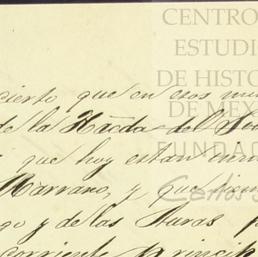 CENTRO
ESTUDI
DE HISTO
DE MEX
FUNDAC
Carlos S
cierto que en esos mu
de la Hacda del
que hoy estan
Marrano, y que
go y de las Auras
corriente princip